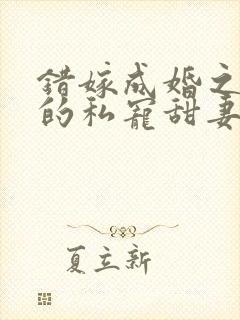 错嫁成婚之
的私宠甜妻
夏立新